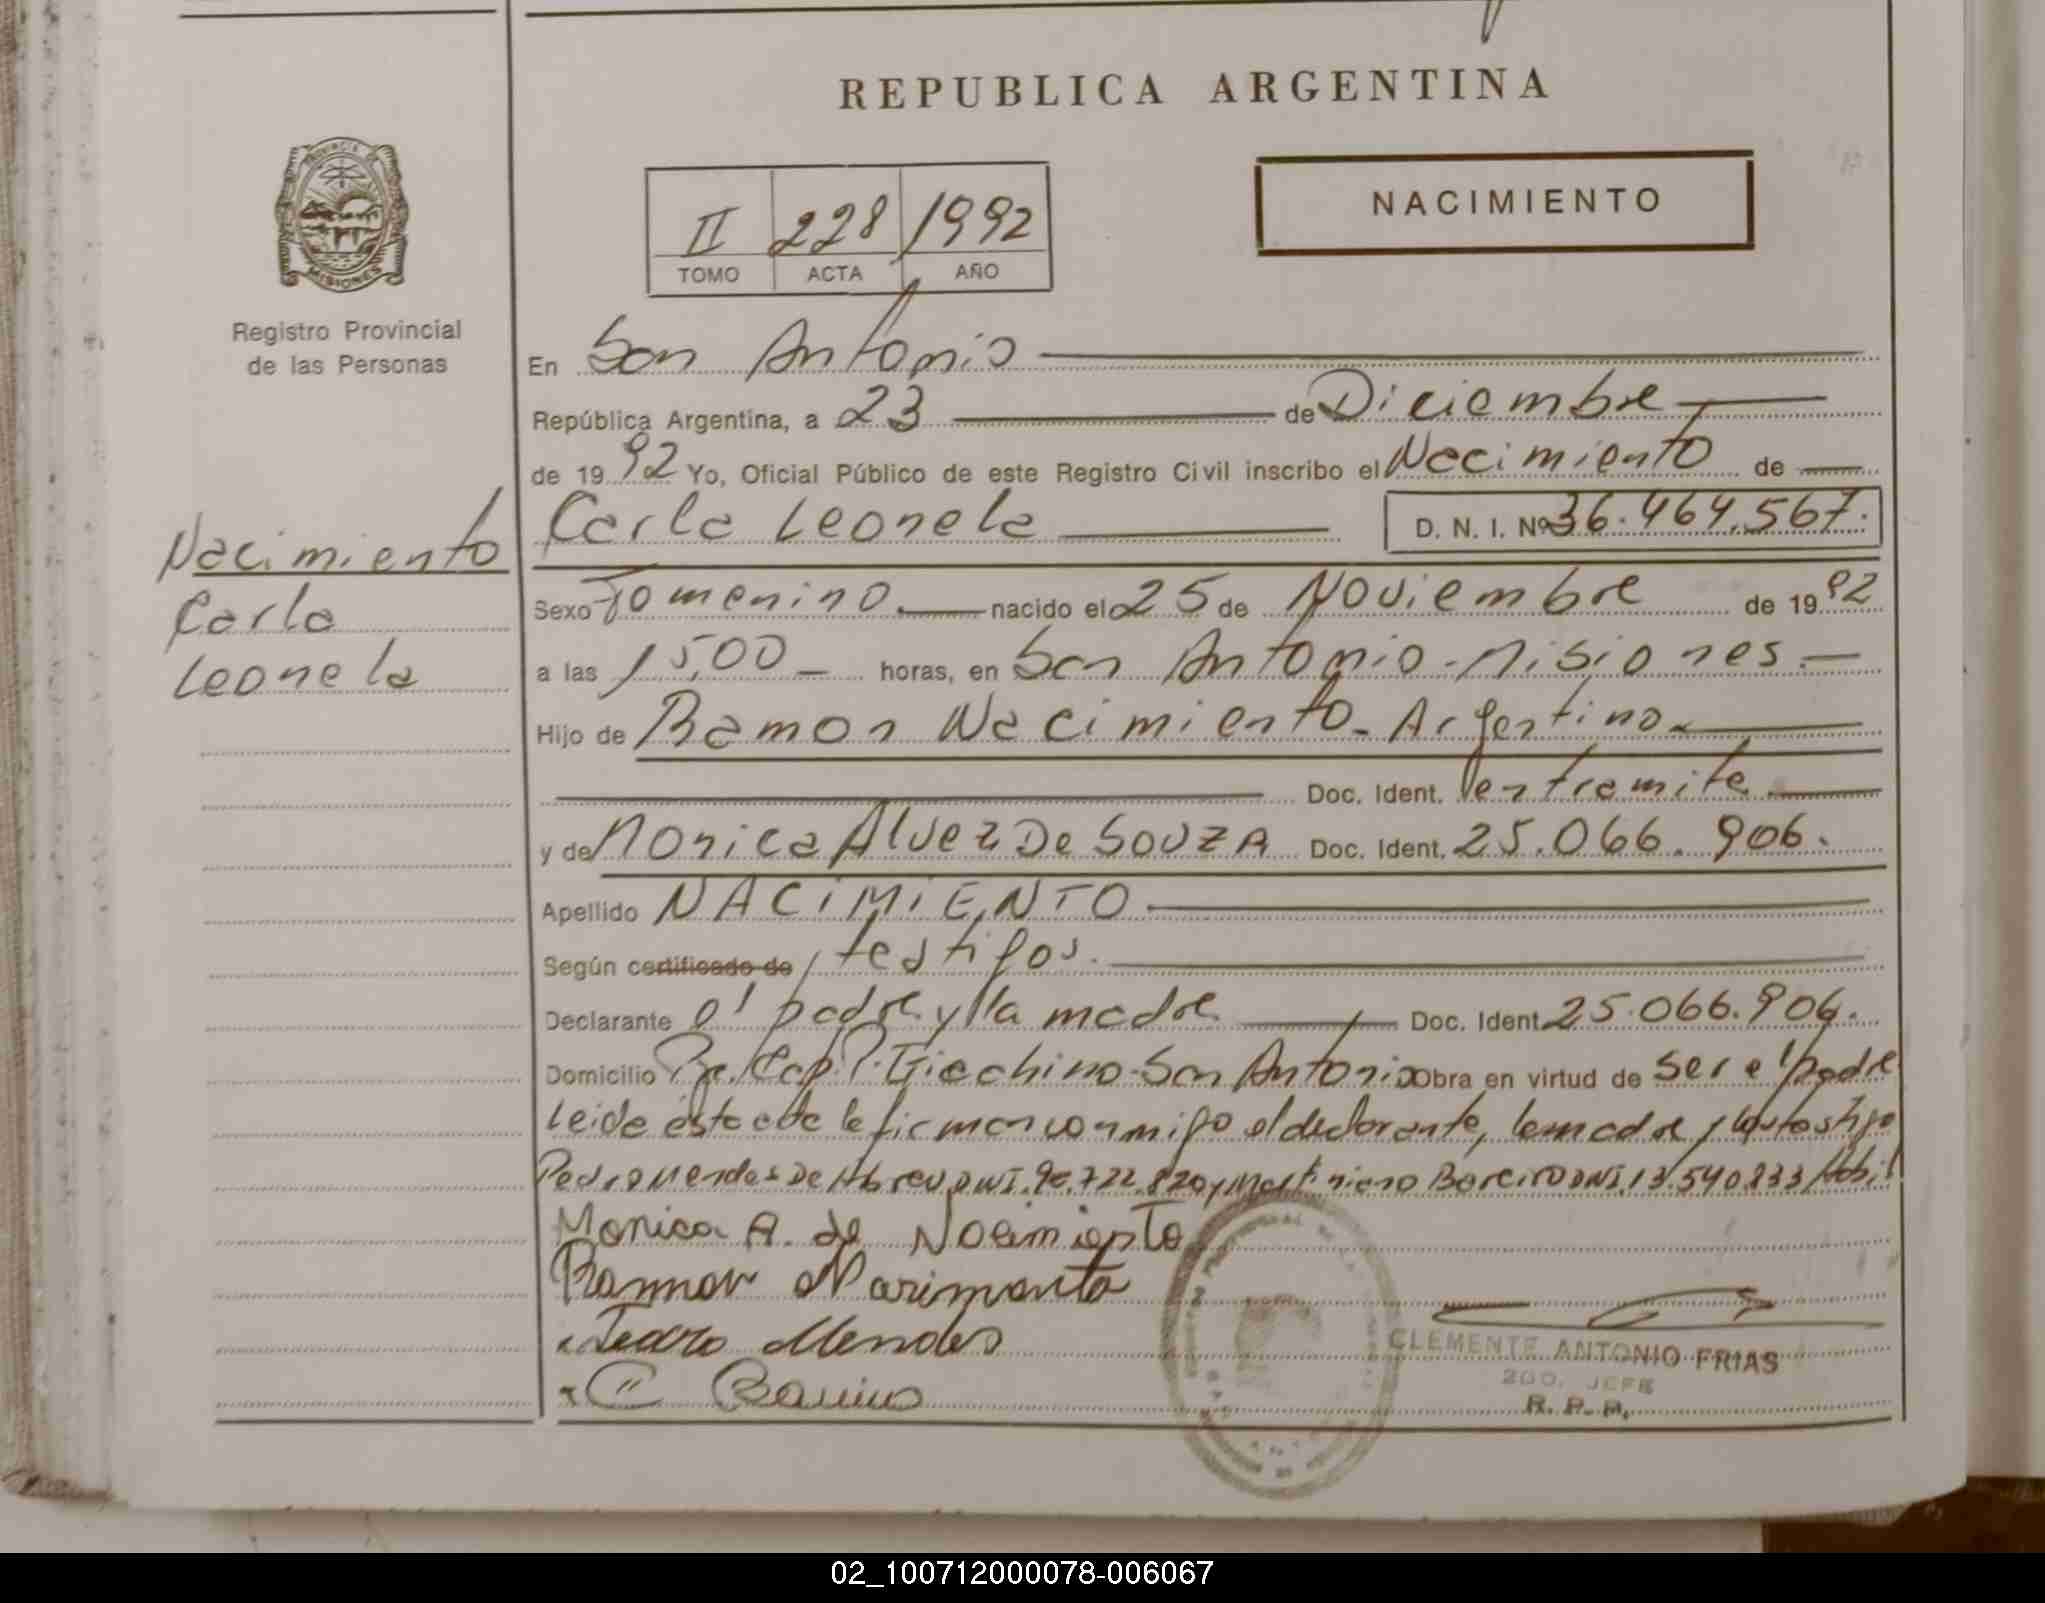 REPUBLICA ARGENTINA
PROVINCIA DE
MISIONES
Registro Provincial
de las Personas
II 228 1992
TOMO ACTA AÑO
NACIMIENTO
En San Antonio
República Argentina, a 23 de Diciembre
de 1992 Yo, Oficial Público de este Registro Civil inscribo el Nacimiento de
Carla Leonela D. N. I. Nº 36.464.567.
Nacimiento
Carla
Leonela
Sexo Femenino nacido el 25 de Noviembre de 1992
a las 15,00 horas, en San Antonio - Misiones.
Hijo de Ramon Nacimiento - Argentino
Doc. Ident. en tramite
y de Monica Alvez De Souza Doc. Ident. 25.066.906.
Apellido NACIMIENTO
Según certificado de / testigos.
Declarante el padre y la madre Doc. Ident. 25.066.906.
Domicilio San Antonio Obra en virtud de ser el padre
Leida esta acta la firman conmigo el declarante, la madre y los testigo
Pedro Mendes De Abreu DNI. 92.722.820 y Martiniano Bareiro DNI. 13.540.833
Monica A. de Nacimiento
Ramon Nacimento
Pedro Mendes
Bareiro
CLEMENTE ANTONIO FRIAS
2DO. JEFE
R. P. P.
02_100712000078-006067